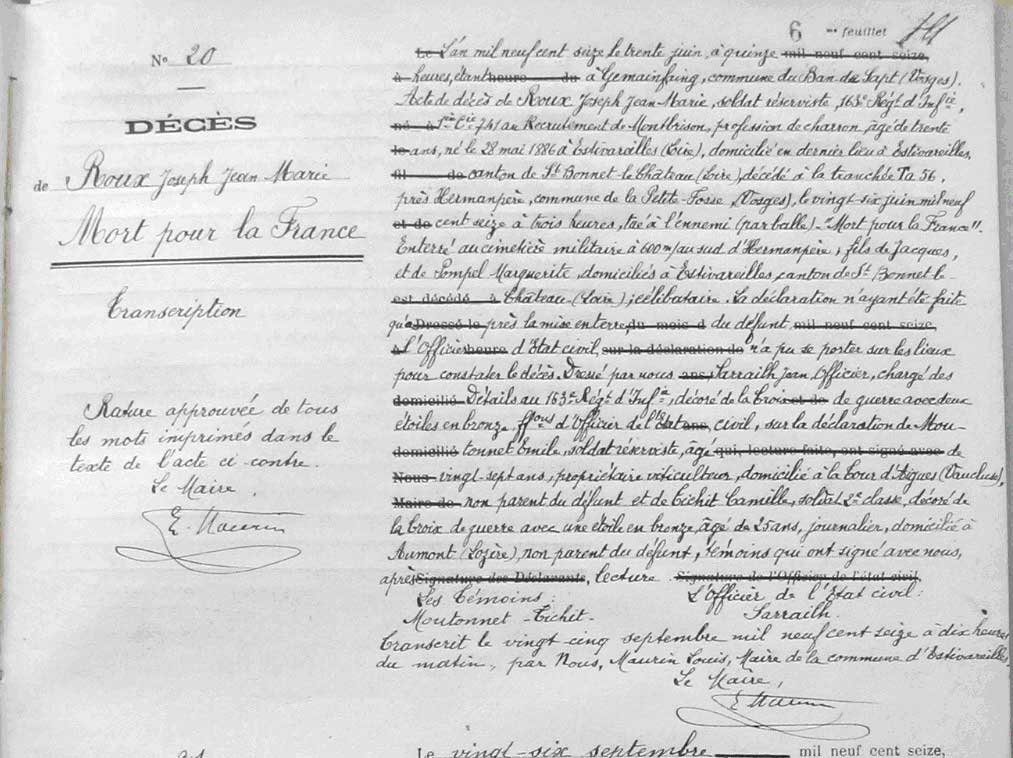 6 me feuillet
Nº 20
DÉCÈS
de Roux Joseph Jean Marie
Mort pour la France
Transcription
Rature approuvée de tous
les mots imprimés dans le
texte de l'acte ci-contre.
Le Maire,
L. Maurin
Le L'an mil neuf cent seize le trente juin, à quinze mil neuf cent seize,
à heures, étant heure du à Gemainfaing, commune du Ban de Sapt (Vosges),
Acte de décès de Roux Joseph Jean-Marie, soldat réserviste, 163e Régt d'Infie,
né à Cie 741 au Recrutement de Montbrison, profession de charron, âgé de trente
le ans, né le 28 mai 1886 à Estivareilles (Loire), domicilié en dernier lieu à Estivareilles,
fil de canton de St Bonnet le Château (Loire), décédé à la tranchée Ta 56,
près Hermanpère, commune de la Petite-Fosse (Vosges), le vingt-six juin mil neuf
et de cent seize à trois heures, tué à l'ennemi (par balle) - "Mort pour la France".
Enterré au cimetière militaire à 600m au sud d'Hermanpère; fils de Jacques,
et de Pompel Marguerite, domiciliés à Estivareilles, canton de St Bonnet le-
est décédé à Château-(Loire); célibataire. La déclaration n'ayant été faite
qu'a Dressé le près la mise en terre, du mois d du défunt, mil neuf cent seize,
à l'Officier heure d'Etat civil, sur la déclaration de n'a pu se porter sur les lieux
pour constater le décès. Dressé par nous ans, Sarrailh Jean, Officier, chargé des
domicilié Détails au 163e Régt d'Infie, décoré de la Croix et de de guerre avec deux
étoiles en bronze, ffons d'Officier de l'Etat ans, civil, sur la déclaration de Mou-
domicilié tonnet Emile, soldat réserviste, âgé qui, lecture faite, ont signé avec de
Nous vingt-sept ans, propriétaire viticulteur, domicilié à la Tour d'Aigues (Vaucluse),
Maire de non parent du défunt et de Tichit Camille, soldat 2e classe, décoré de
la Croix de guerre avec une étoile en bronze, âgé de 25 ans, journalier, domicilié à
Aumont (Lozère), non parent du défunt, témoins qui ont signé avec nous,
après Signature des Déclarants, lecture. Signature de l'Officier de l'état civil,
Les Témoins: L'Officier de l'Etat civil:
Moutonnet - Tichit. Sarrailh.
Transcrit le vingt-cinq septembre mil neuf cent seize à dix heures
du matin, par Nous, Maurin Louis, Maire de la commune d'Estivareilles,
Le Maire,
L. Maurin
Le vingt-six septembre mil neuf cent seize,